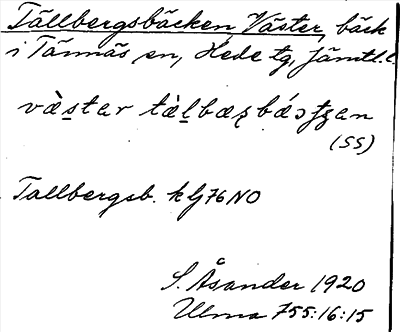 Tällbergsbäcken, Väster, bäck
i Tännäs sn, Hede tg, Jämtl. l.
(SS)
Tallbergsb. k lj 76 NO
S. Åsander 1920
Ulma 755:16:15